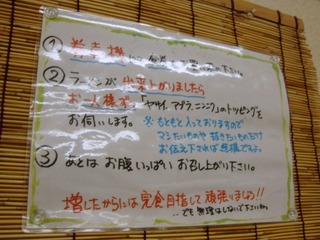 ① 券売機 下さい。
② ラーメンが出来上がりましたら
お一人様ずつ「ヤサイ、アブラ、ニンニク」のトッピングを
お伺いします。
※もともと入っておりますので
マシたいものや 抜きたいものだけ
お伝え下されば 結構ですよ。
③ あとは お腹いっぱい お召し上がり下さい。
増したからには 完食目指して 頑張りましょう!!
…でも無理はしないで下さいね。